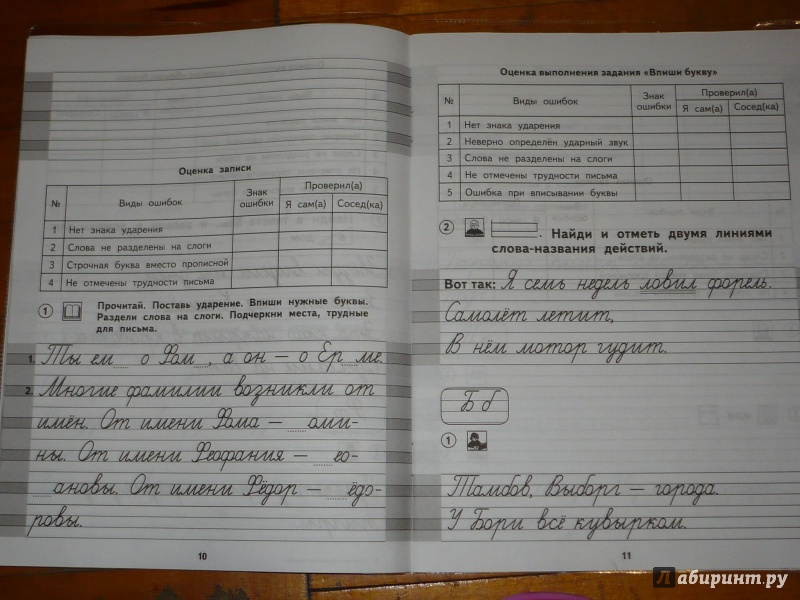 Оценка записи
№ Виды ошибок Знак ошибки Проверил(а)
Я сам(а) Сосед(ка)
1 Нет знака ударения
2 Слова не разделены на слоги
3 Строчная буква вместо прописной
4 Не отмечены трудности письма
1 Прочитай. Поставь ударение. Впиши нужные буквы.
Раздели слова на слоги. Подчеркни места, трудные
для письма.
1. Ты ем__ о Фом__, а он — о Ер__ме.
2. Многие фамилии возникли от
имён. От имени Фома — __оми-
ны. От имени Феофания — __ео-
__ановы. От имени Фёдор — __ёдо-
ровы.
10
Оценка выполнения задания «Впиши букву»
№ Виды ошибок Знак ошибки Проверил(а)
Я сам(а) Сосед(ка)
1 Нет знака ударения
2 Неверно определён ударный звук
3 Слова не разделены на слоги
4 Не отмечены трудности письма
5 Ошибка при вписывании буквы
2 . Найди и отметь двумя линиями
слова-названия действий.
Вот так: Я семь недель ловил форель.
Самолёт летит,
В нём мотор гудит.
Б б
1
Тамбов, Выборг — города.
У Бори всё кувырком.
11
Лабиринт.ру